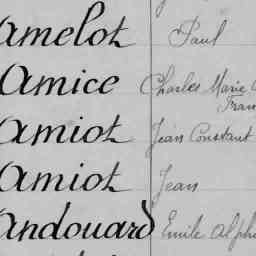 Amelot Paul
Amice Charles Marie
Amiot Jean Constant
Amiot Jean
Andouard Emile